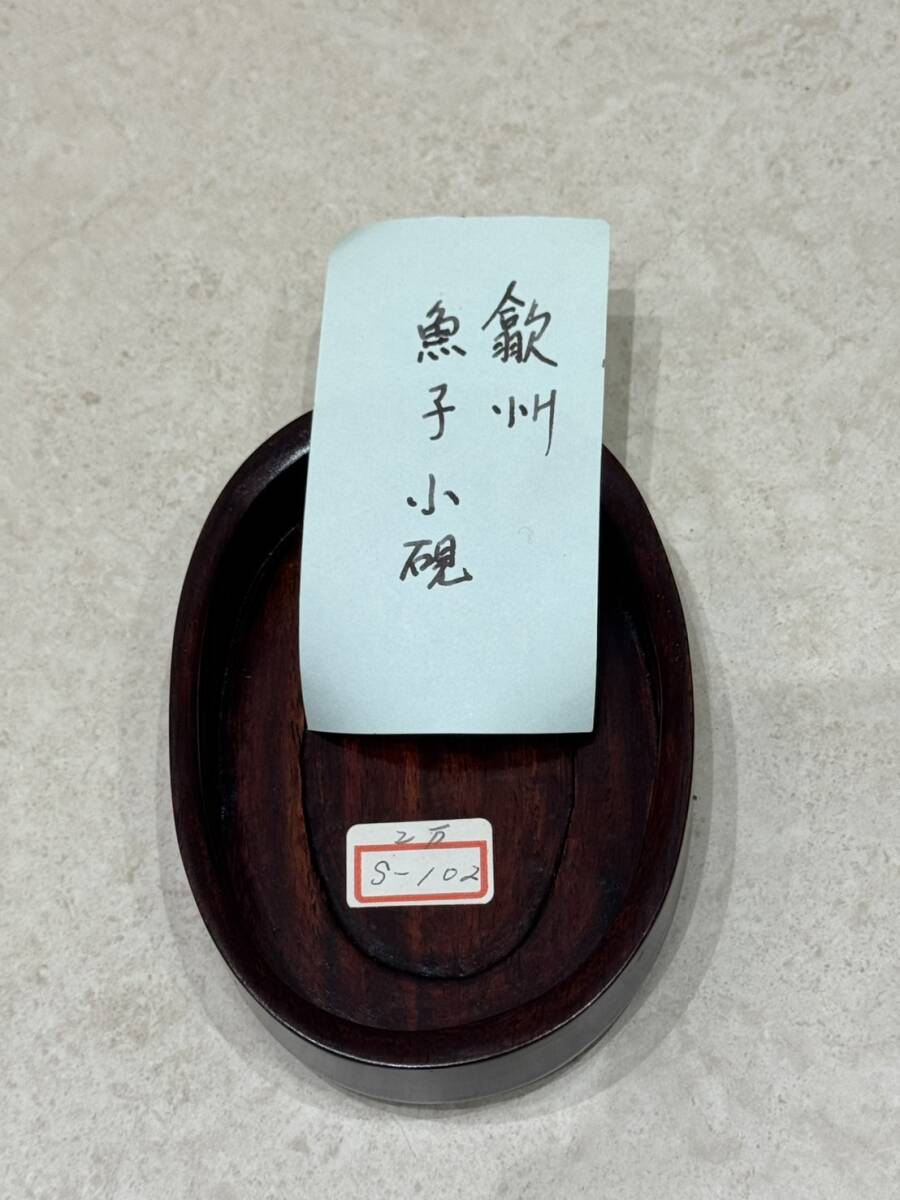 歙州
魚子小硯
2万
S-102